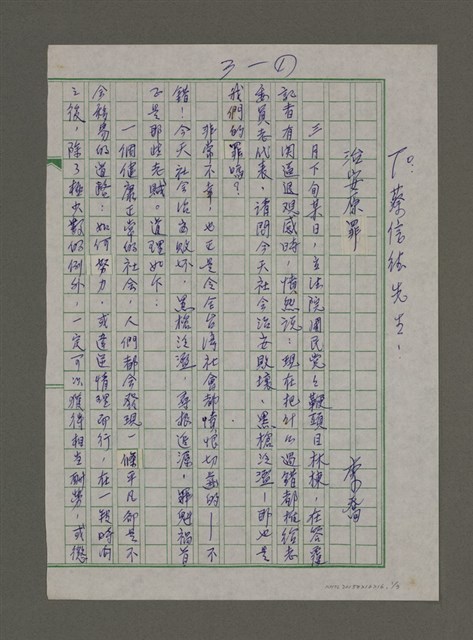 3-(1)
To: 蔡信德先生:
治安原罪
李喬
三月下旬某日,立法院國民黨之鞭頭目林棟,在答覆
記者有関逼退观感時,憤然說:現在把什么過錯都推給老
委員老代表,請問今天社会治安敗壞、黑槍泛濫-那也是
我們的罪嗎?
非常不幸,也正是令全台湾社會都憤恨切齒的——不
錯!今天社会治安敗坏、黑槍泛濫,尋根追源,罪魁禍首
正是那些老賊。道理如下:
一個健康正常的社会,人們都会發現一條平凡卻是不
会移易的道理:如何努力,或遵循情理而行,在一段時间
之後,除了極少數的例外,一定可以獲得相当酬勞,或懲